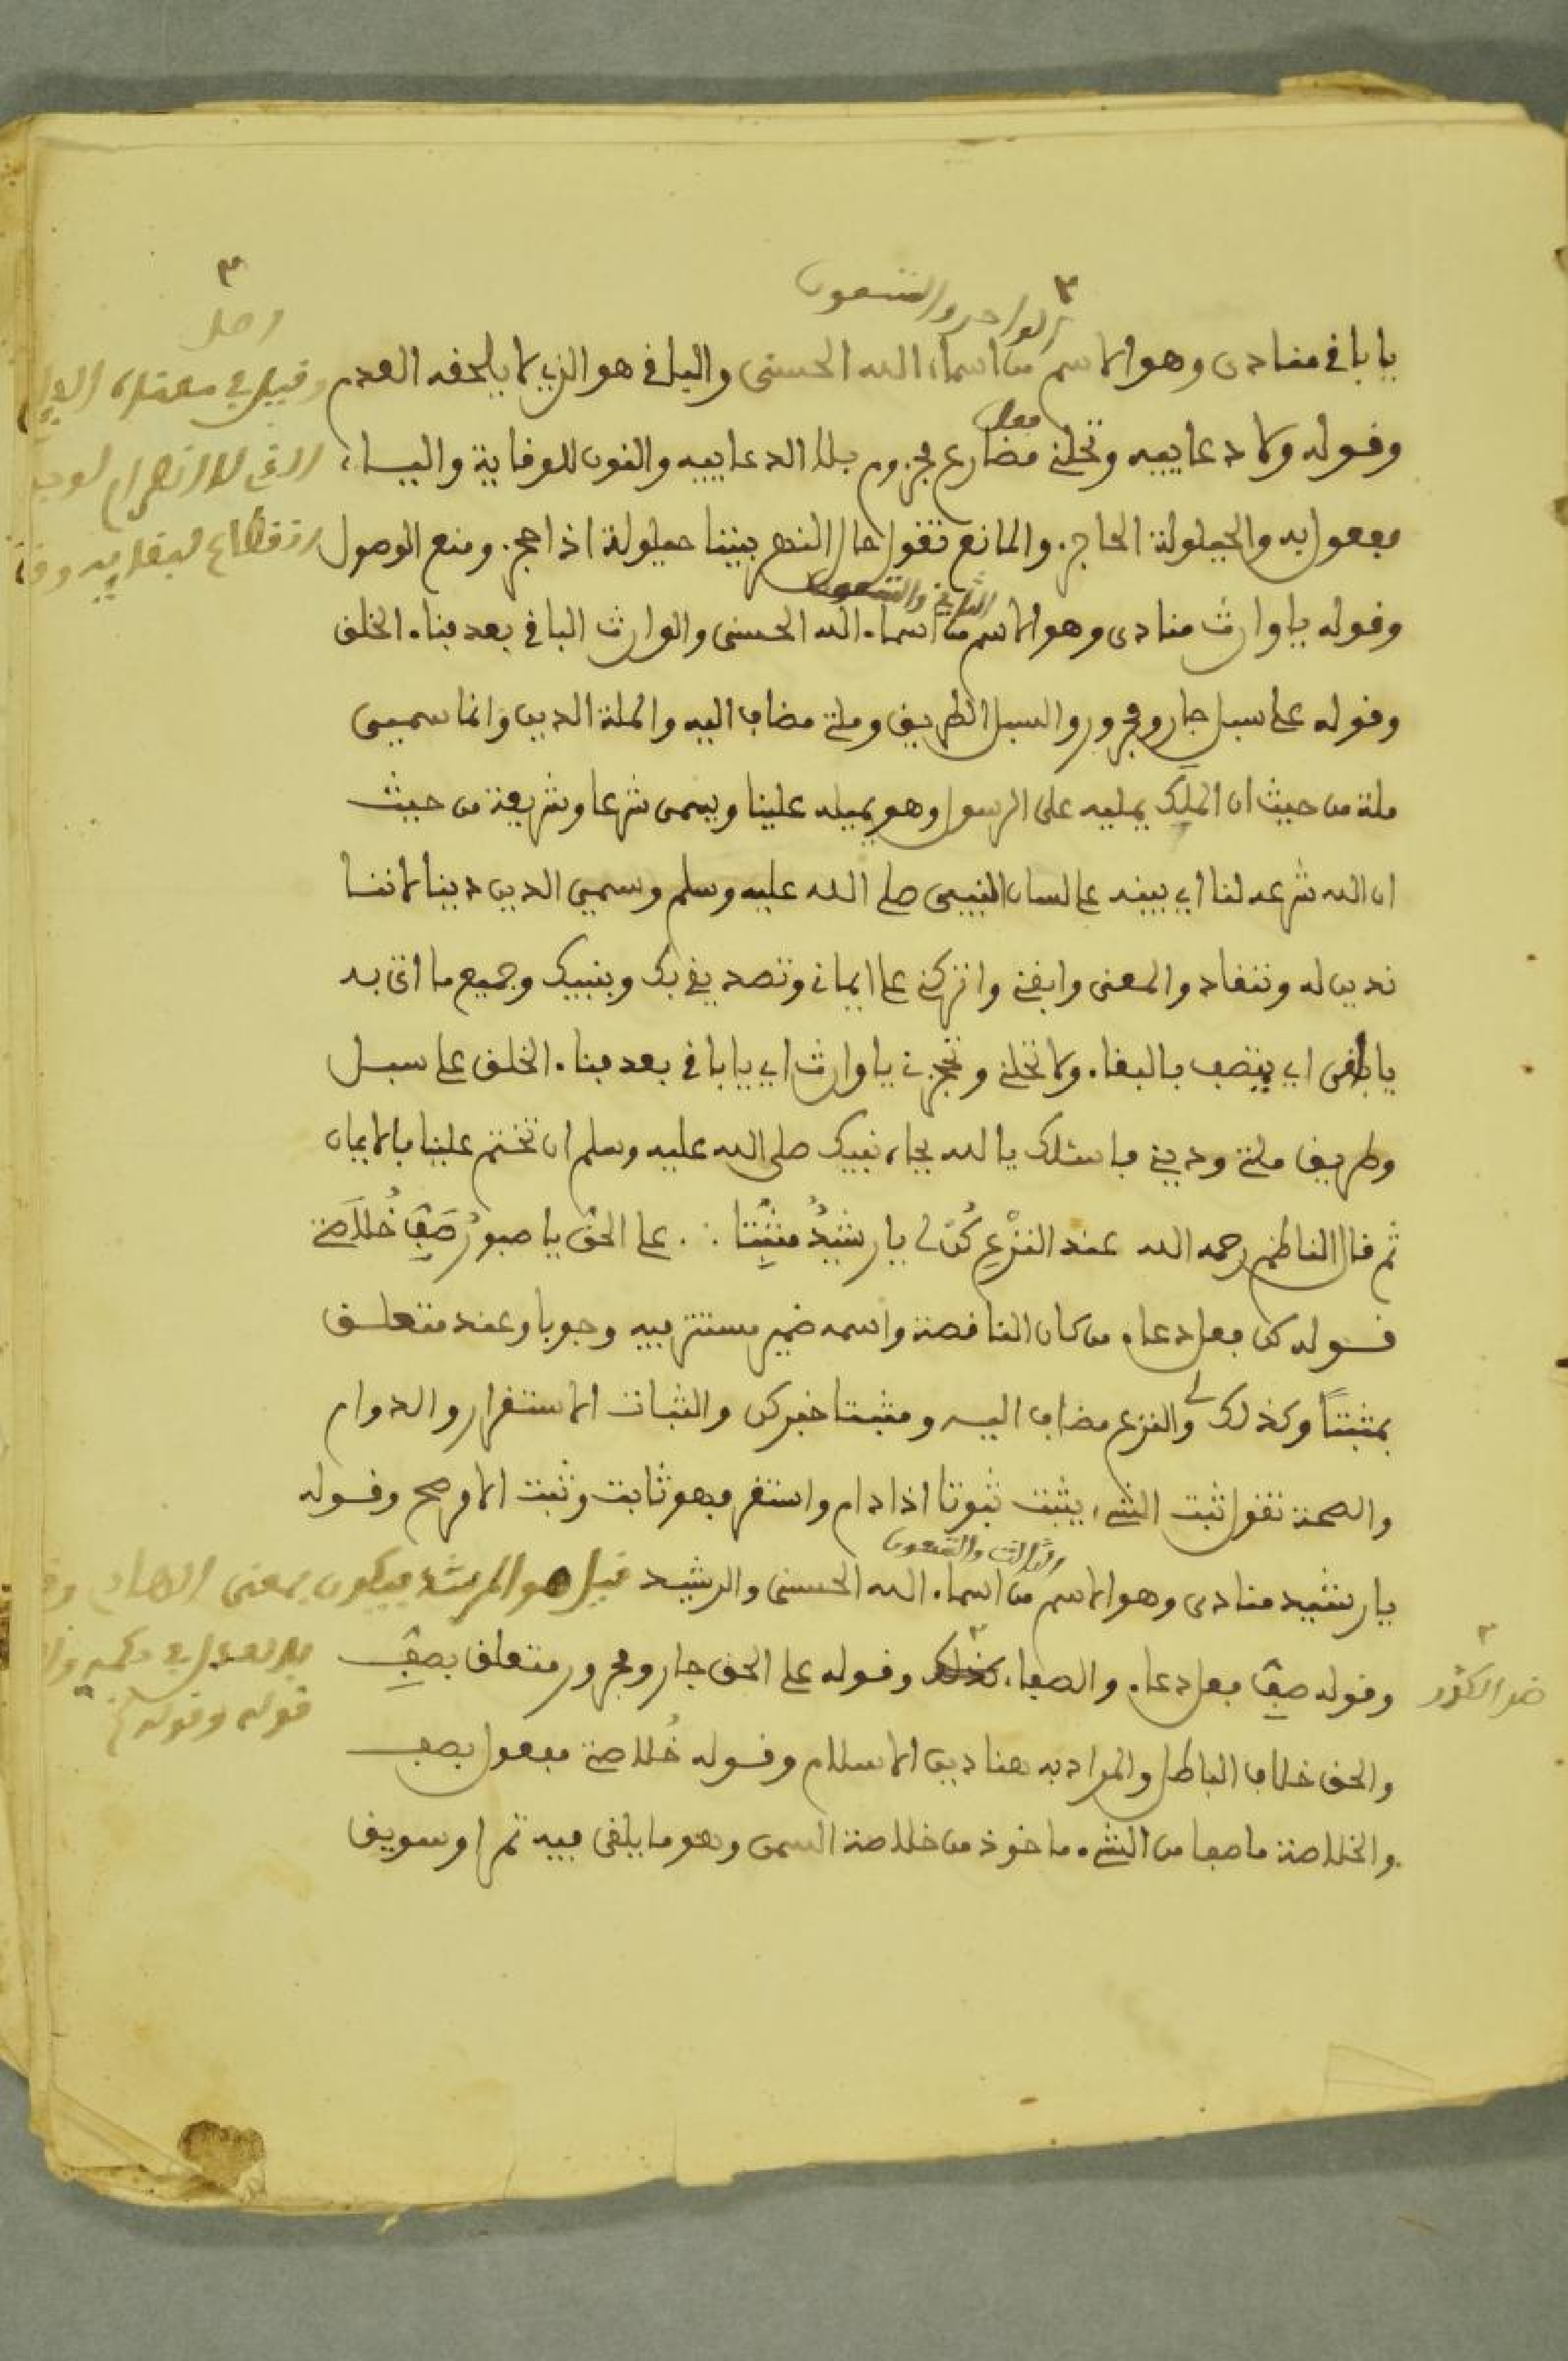 الواحد والتسعون
يا باقي منادى وهو الاسم من اسماء الله الحسنى والباقي هو الذي لا يلحقه العدم
وقوله ولا دعاييه وتخلني فعل مضارع مجزوم بلا الدعاييه والنون للوقاية والياء
مفعول به والحيلولة الحاجز والمانع تقول حال النهر بيننا حيلولة اذا حجز ومنع الوصول
الثاني والتسعون
وقوله يا وارث منادى وهو الاسم من اسماء الله الحسنى والوارث الباقي بعد فناء الخلق
وقوله على سبل جار ومجرور والسبل الطريق وملتي مضاف اليه والملة الدين وانما سميى
ملة من حيث ان الملك يمليه على الرسول وهو يميله علينا ويسمى شرعا وشريعة من حيث
ان الله شرعه لنا اي بينه على لسان النبيى صلى الله عليه وسلم وسميى الدين دينا لاننا
ندين له وننقاد والمعنى وابقني واتركني على ايماني وتصديقي بك وبنبيك وجميع ما اتى به
يا باقى اي يتصف بالبقاء ولا تخلني وتحجزني يا وارث اي يا باقي بعد فناء الخلق على سبل
وطريق ملتي وديني فاسئلك يا الله بجاه نبيك صلى الله عليه وسلم ان تختم علينا بالايمان
ثم قال الناظم رحمه الله عند النزْعِ كُن لي يا رشيدُ مثبِّتا ؞ على الحق يا صبورُ صَفِّ خُلاَصَتي
قوله كن فعل دعاء من كان الناقصة واسمه ضمير مستتر فيه وجوبا وعند متعلق
بمثبتاً وكذلك لي والنزع مضاف اليه ومثبتا خبر كن والثبات الاستقرار والدوام
والصحة تقول ثبت الشيء يثبت ثبوتا اذا دام واستقر فهو ثابت وثبت الامر صح وقوله
الثالث والتسعون
يا رشيد منادى وهو الاسم من اسماء الله الحسنى والرشيد قيل هو المرشد فيكون بمعنى الهادي
وقوله صفِّ فعل دعاء والصفاء ضد الكدر وقوله على الحق جار ومجرور متعلق بصفِّ
والحق خلاف الباطل والمراد به هنا دين الاسلام وقوله خُلاصتي مفعول بصف
والخلاصة ما صفا من الشيء ماخوذ من خلاصة السمن وهو ما يلقى فيه تمر او سويق